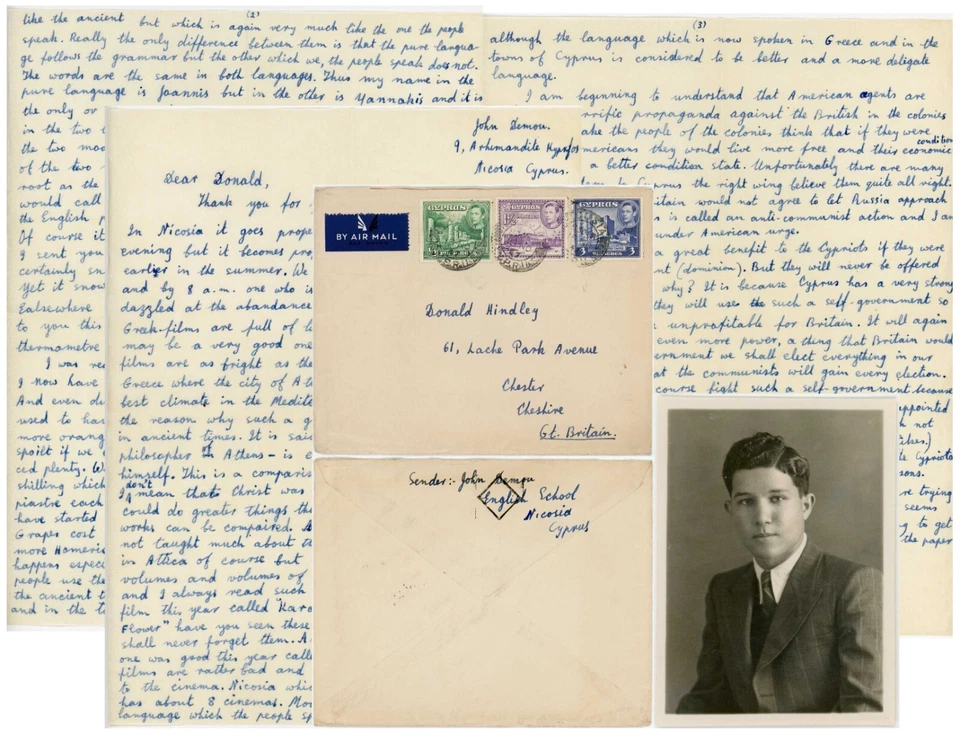 (2)
like the ancient but which is again very much like the one the people
speak. Really the only difference between them is that the pure langua-
ge follows the grammar but the other which we, the people speak does not.
The words are the same in both languages. Thus my name in the
pure language is Joannis but in the other is Yannakis and it is
the only
in the two
the two
of the two
root as the
would call
the English
Of course it
I sent you
certainly
Yet it snow
Ealsewhere
to you this
thermametre
I was
I now have
And even
used to
more orang
spoilt if we
ced plenty.
shilling which
piastre each
have started
Grapes cost
more Homeric
happens espec
people use the
the ancient
and in the
(3)
although the language which is now spoken in Greece and in the
towns of Cyprus is considered to be better and a more deligate
language.
I am beginning to understand that American agents are
rrific propaganda against the British in the colonies
ake the people of the colonies think that if they were
mericans they would live more free and their economic condition
a better condition state. Unfortunately there are many
Cyprus the right wing belive them quite all right.
ritain would not agree to let Russia approach
is called an anti-communist action and I am
under American urge.
a great benefit to the Cypriots if they were
nt (dominion). But they will never be offered
why? It is because Cyprus has a very strong
they will use the such a self-government so
unprofitable for Britain. It will again
even more power, a thing that Britain would
ernment we shall elect everything in our
at the communists will gain every election.
course fight such a self-government because
appointed
not
Cypriots
re trying
seems
to get
the paper
John Demou.
9, Arhimandite
Nicosia Cyprus.
Dear Donald,
Thank you for
In Nicosia it goes
evening but it becomes
earlier in the summer. We
and by 8 a.m. one who is
dazzled at the abundance
Greek-films are full of
may be a very good one
films are as bright as the
Greece where the city of
best climate in the Medite
the reason why such a
in ancient times. It is said
philosopher in Athens - is
himself. This is a comparis
I don't mean that Christ was
could do greater things
works can be compaired.
not taught much about
in Attica of course but
volumes and volumes of
and I always read such
film this year called
Flower" have you seen these
shall never forget them. A
one was good this year calle
films are rather bad and
to the cinema. Nicosia whic
has about 8 cinemas.
language which the people
BY AIR MAIL
CYPRUS
CYPRUS
CYPRUS
3
3
Donald Hindley
61, Lache Park Avenue
Chester
Cheshire
Gt. Britain.
Sender:- John Demou
English School
Nicosia
Cyprus